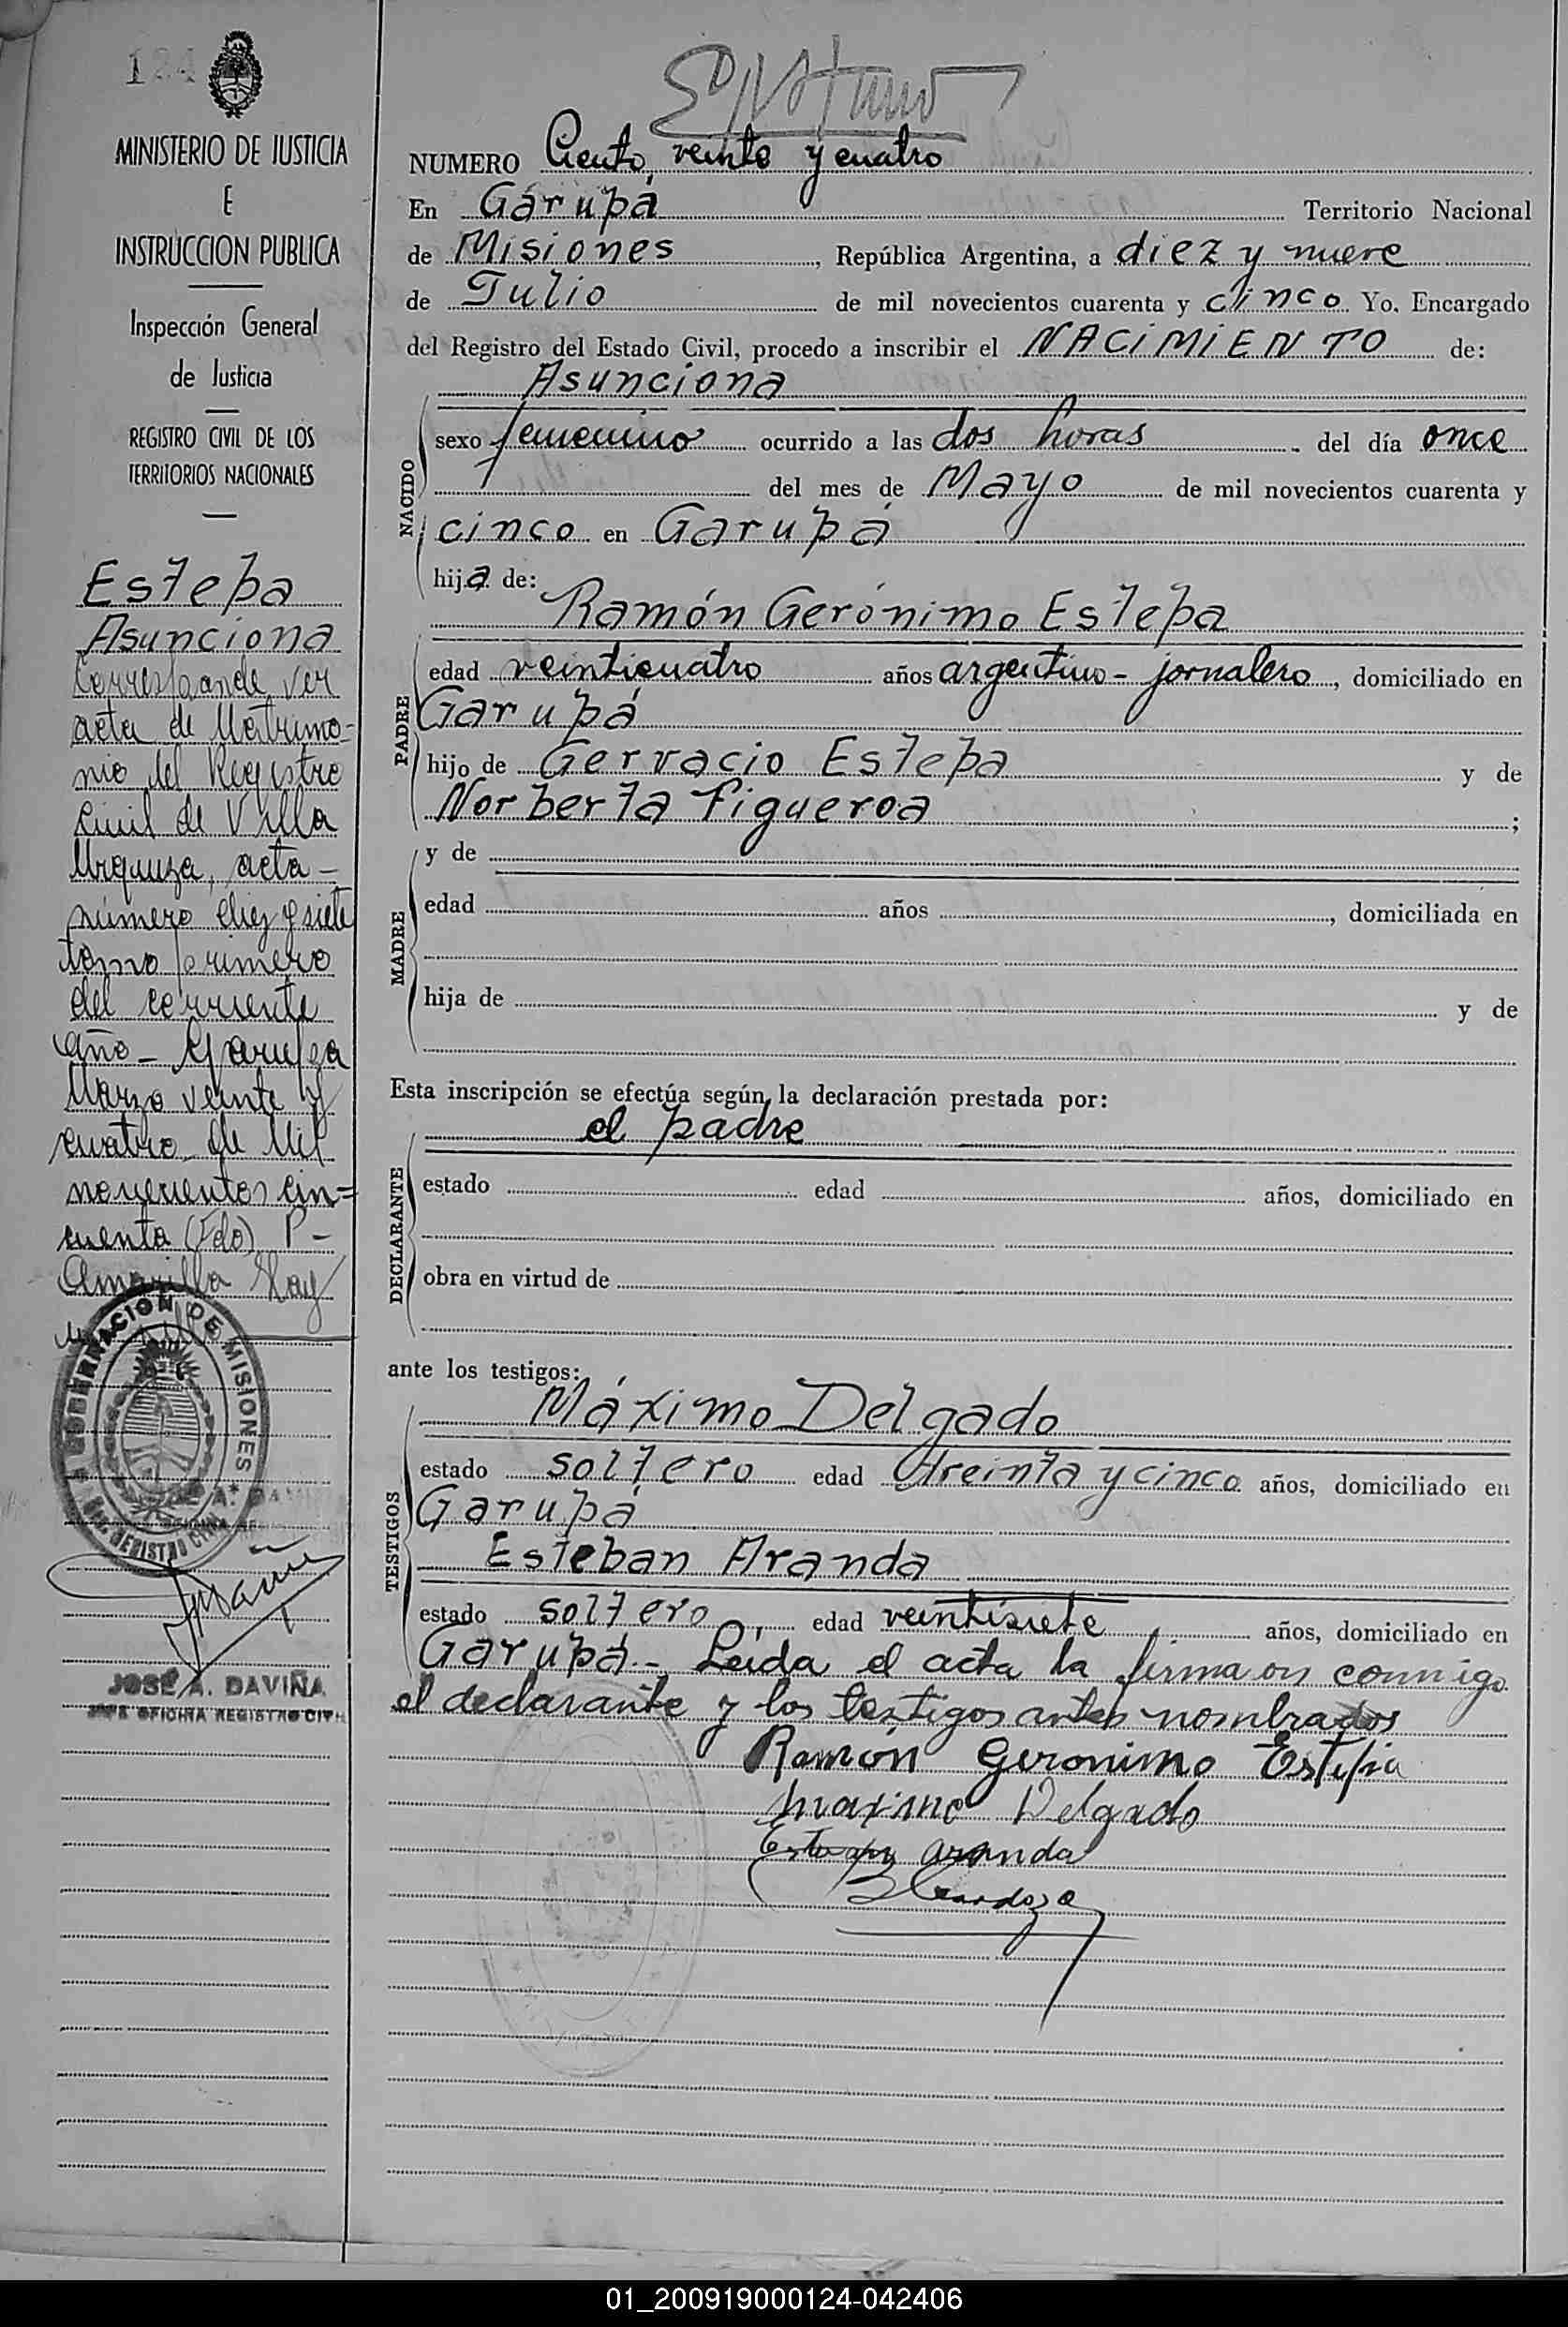 124
MINISTERIO DE JUSTICIA
E
INSTRUCCION PUBLICA
Inspección General
de Justicia
REGISTRO CIVIL DE LOS
TERRITORIOS NACIONALES
Estepa
Asunciona
Corresponde ver
acta de Matrimo-
nio del Registro
Civil de Villa
Urquiza, acta -
número diez y siete
tomo primero
del corriente
año - Garupa
Marzo veinte y
cuatro de Mil
novecientos cin=
cuenta (Fdo) P-
Amarilla Hay
GOBERNACION DE MISIONES
REGISTRO CIVIL
JOSÉ A. DAVIÑA
JEFE OFICINA REGISTRO CIVIL
NUMERO Ciento, veinte y cuatro
En Garupá Territorio Nacional
de Misiones, República Argentina, a diez y nueve
de Julio de mil novecientos cuarenta y cinco Yo, Encargado
del Registro del Estado Civil, procedo a inscribir el NACIMIENTO de:
Asunciona
NACIDO
sexo femenino ocurrido a las dos horas del día once
del mes de Mayo de mil novecientos cuarenta y
cinco en Garupá
hija de:
Ramón Gerónimo Estepa
PADRE
edad veinticuatro años argentino - jornalero, domiciliado en
Garupá
hijo de Gervacio Estepa y de
Norberta Figueroa ;
MADRE
y de
edad años , domiciliada en
hija de y de
Esta inscripción se efectúa según la declaración prestada por:
el padre
DECLARANTE
estado edad años, domiciliado en
obra en virtud de
ante los testigos:
Máximo Delgado
TESTIGOS
estado soltero edad treinta y cinco años, domiciliado en
Garupá
Esteban Aranda
estado soltero edad veintisiete años, domiciliado en
Garupá - Leída el acta la firma on conmigo
el declarante y los testigos antes nombrados
Ramón Geronimo Estepa
Maximo Delgado
Esteban Aranda
Mendoza
01_200919000124-042406